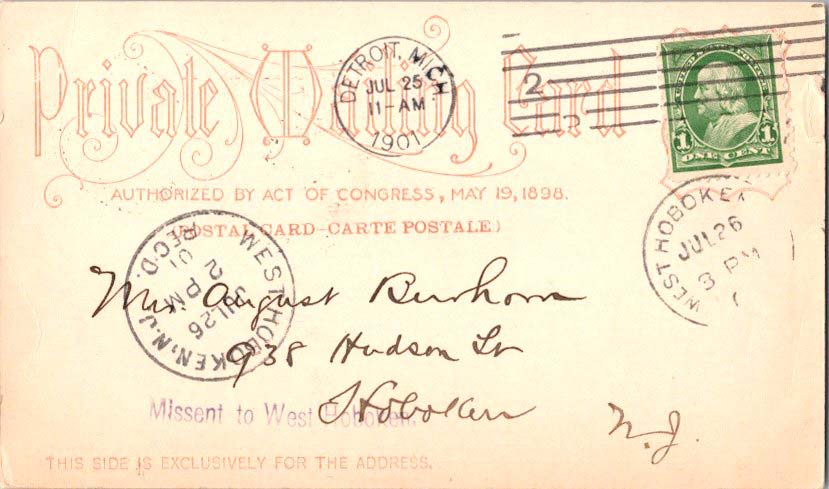 Private Mailing Card
AUTHORIZED BY ACT OF CONGRESS, MAY 19, 1898.
(POSTAL CARD-CARTE POSTALE.)
DETROIT, MICH.
JUL 25
11-AM
1901
2
1 1
ONE CENT
WEST HOBOKEN
JUL 26
3 PM
WEST HOBOKEN, N.J.
JUL 26
2 PM
01
REC'D.
August
938 Hudson St
Hoboken
N.J.
Missent to West Hoboken.
THIS SIDE IS EXCLUSIVELY FOR THE ADDRESS.